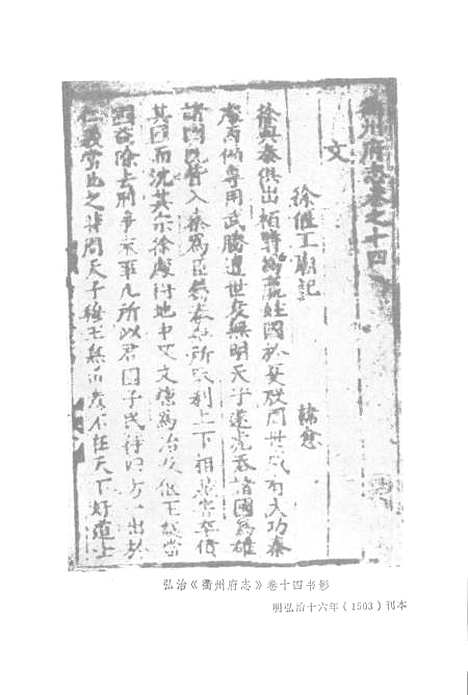 衢州府志卷之十四
文
徐偃王廟記 韓愈
徐與秦俱出栢翳為嬴姓國於夏殷周世咸有大功秦
處西偏專用武勝遭世衰無明天子遂虎吞諸國為雄
諸國既皆入秦為臣屬秦無所取利上下相害卒僨
其國而沈其宗徐處得地中文德為治及偃王誕當
國益除去刑爭末事凡所以君國子民待四方一出於
仁義當此之時周天子穆王無道意不在天下好道士
弘治《衢州府志》卷十四书影
明弘治十六年（1503）刊本